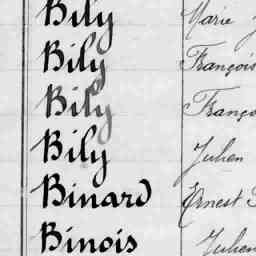 Bily Marie
Bily François
Bily Franço
Bily Julien
Binard Ernest
Binois Julien